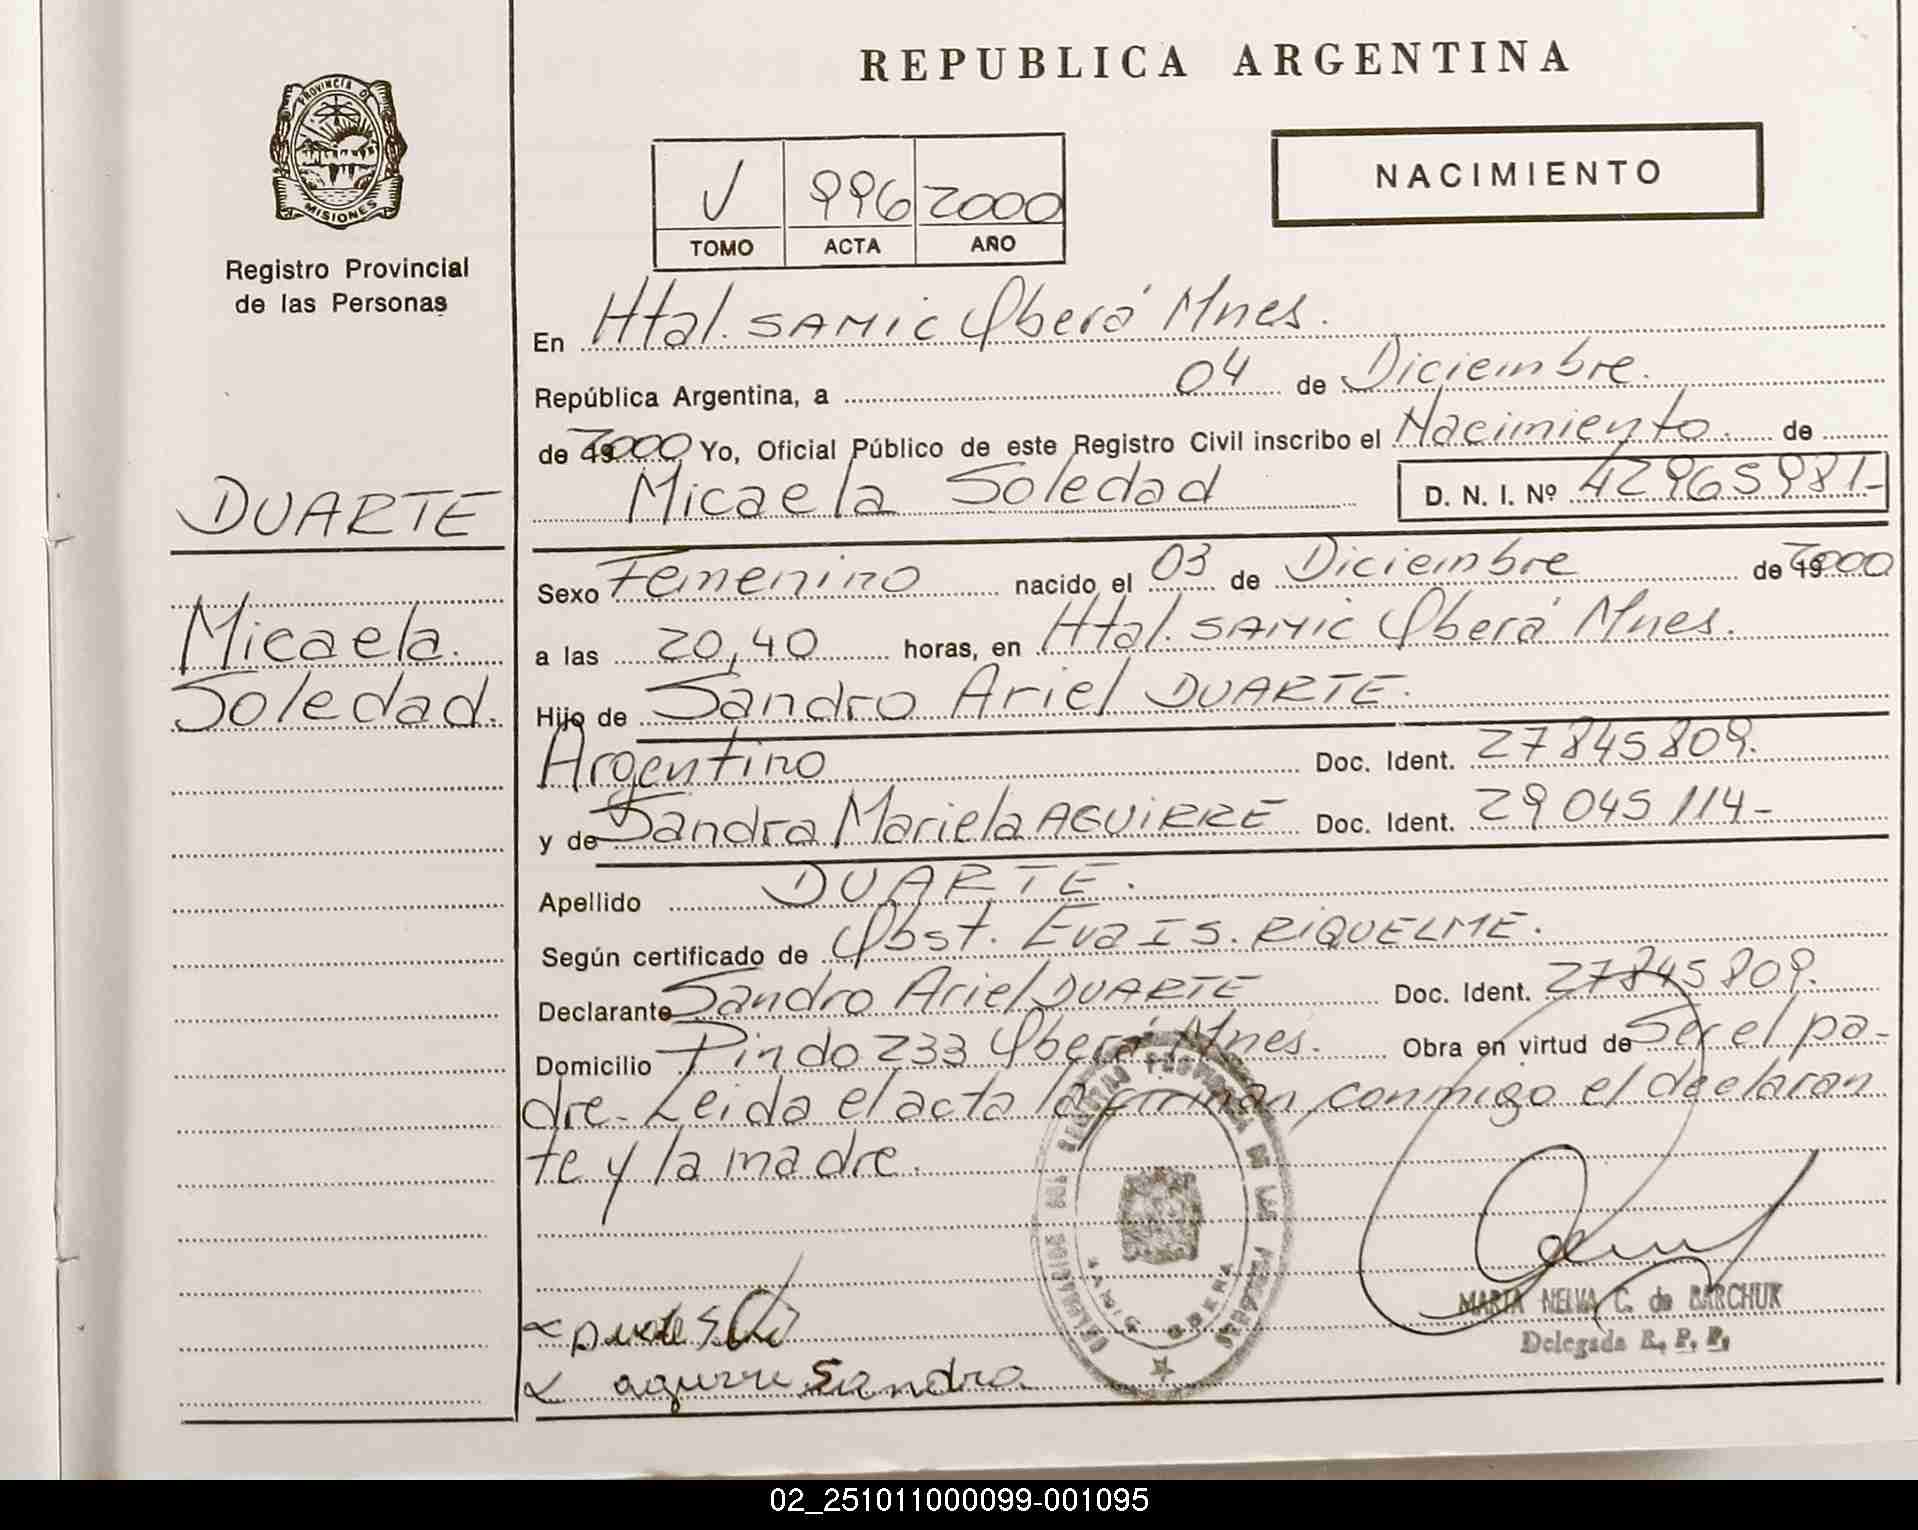 REPUBLICA ARGENTINA
PROVINCIA DE
MISIONES
Registro Provincial
de las Personas
V 996 2000
TOMO ACTA AÑO
NACIMIENTO
En Htal. SAMIC Oberá Mnes.
República Argentina, a 04 de Diciembre.
de 2000 Yo, Oficial Público de este Registro Civil inscribo el Nacimiento de
Micaela Soledad D. N. I. Nº 42965981-
DUARTE
Micaela.
Soledad.
Sexo Femenino nacido el 03 de Diciembre de 2000
a las 20,40 horas, en Htal. SAMIC Oberá Mnes.
Hijo de Sandro Ariel DUARTE.
Argentino Doc. Ident. 27845809.
y de Sandra Mariela AGUIRRE Doc. Ident. 29045114-
Apellido DUARTE.
Según certificado de Obst. Eva IS. RIQUELME.
Declarante Sandro Ariel DUARTE Doc. Ident. 27845809.
Domicilio Pindo 233 Oberá Mnes. Obra en virtud de Ser el pa-
dre- Leida el acta la firman conmigo el declaran
te y la madre.
REGISTRO PROVINCIAL DE LAS PERSONAS
SAMIC OBERA
MARIA NELVA C. de BARCHUK
Delegada R. P. P.
aguirre Sandra
02_251011000099-001095